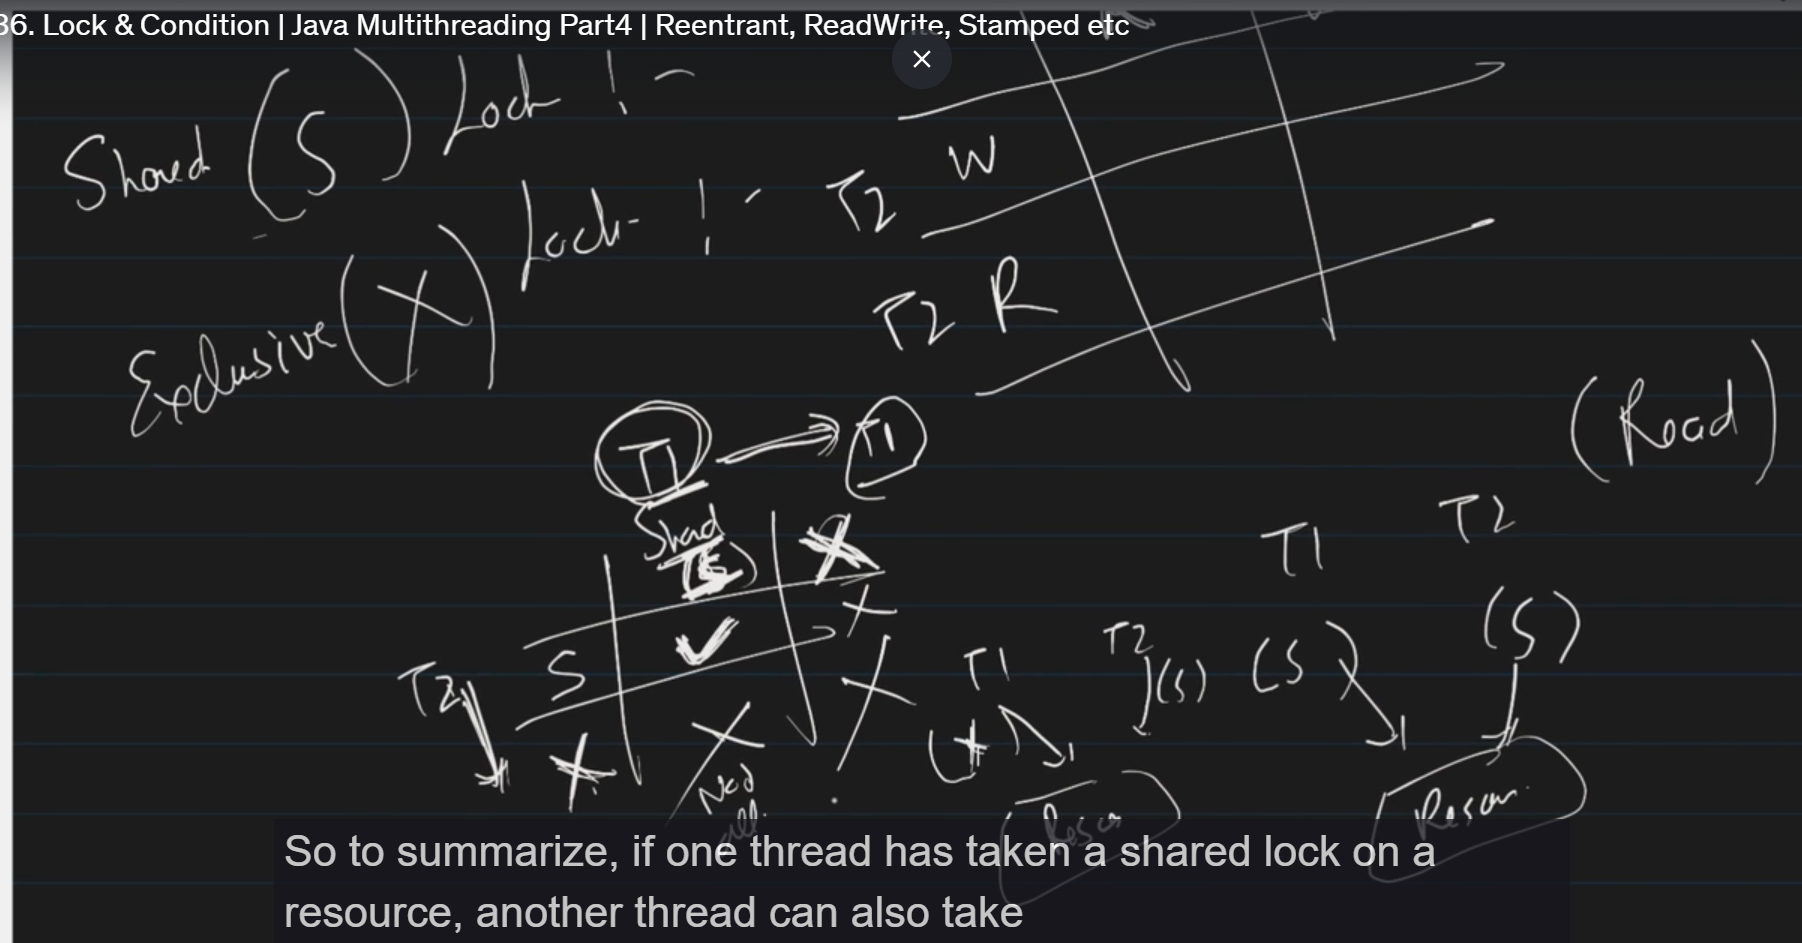 36. Lock & Condition | Java Multithreading Part4 | Reentrant, ReadWrite, Stamped etc
Shared (S) Lock :-
Exclusive (X) Lock :-
T2 W
T2 R
(Read)
T1 → T1
Shad
(S) X
T2 S ✓ X
X X X
Not
all.
T1 T2
(X) (S)
Resou
T1 T2
(S) (S)
Resour.
So to summarize, if one thread has taken a shared lock on a
resource, another thread can also take